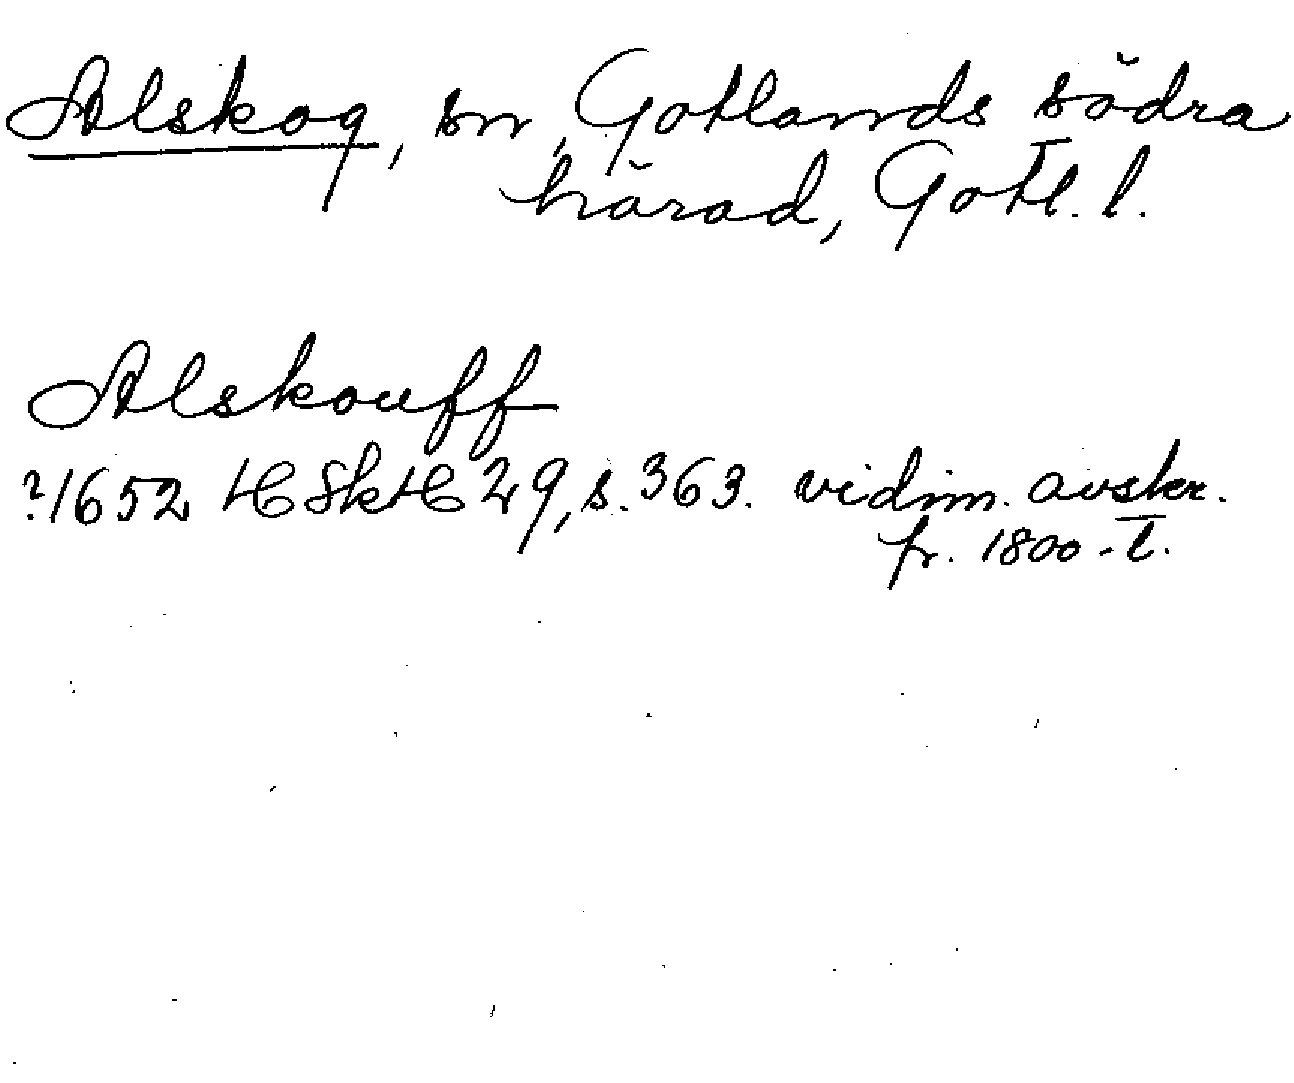 Alskog, sn, Gotlands södra
härad, Gotl. l.
Alskouff
?1652 HSkH 29, s. 363. vidim. avskr.
fr. 1800-t.